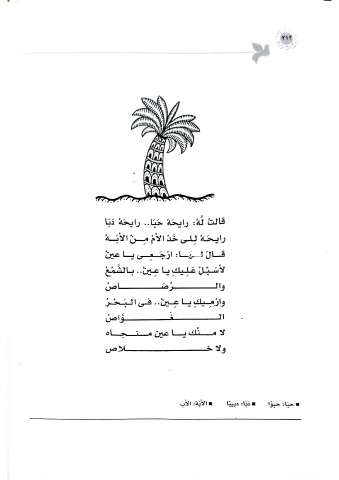 ٣١٢
قالتْ لُه: رايحَهْ حَبَا.. رايحَهْ دَبَا
رايحَهْ لِلى خَدْ الأمْ مِنْ الأبَهْ
قالْ لها: ارْجَعِى يا عينْ
لأسَيِّلْ عَليكِ يا عِينْ.. بالشَّمْعْ
والرُصَاصْ
وارْمِيكِ يا عِينْ.. فى البَحْرْ
الغَوَّاصْ
لا مِنّكْ يا عين منجاه
ولا خلاص
▪ حبَا: حبوًا ▪ دَبَا: دبيبًا ▪ الأبَهْ: الأب